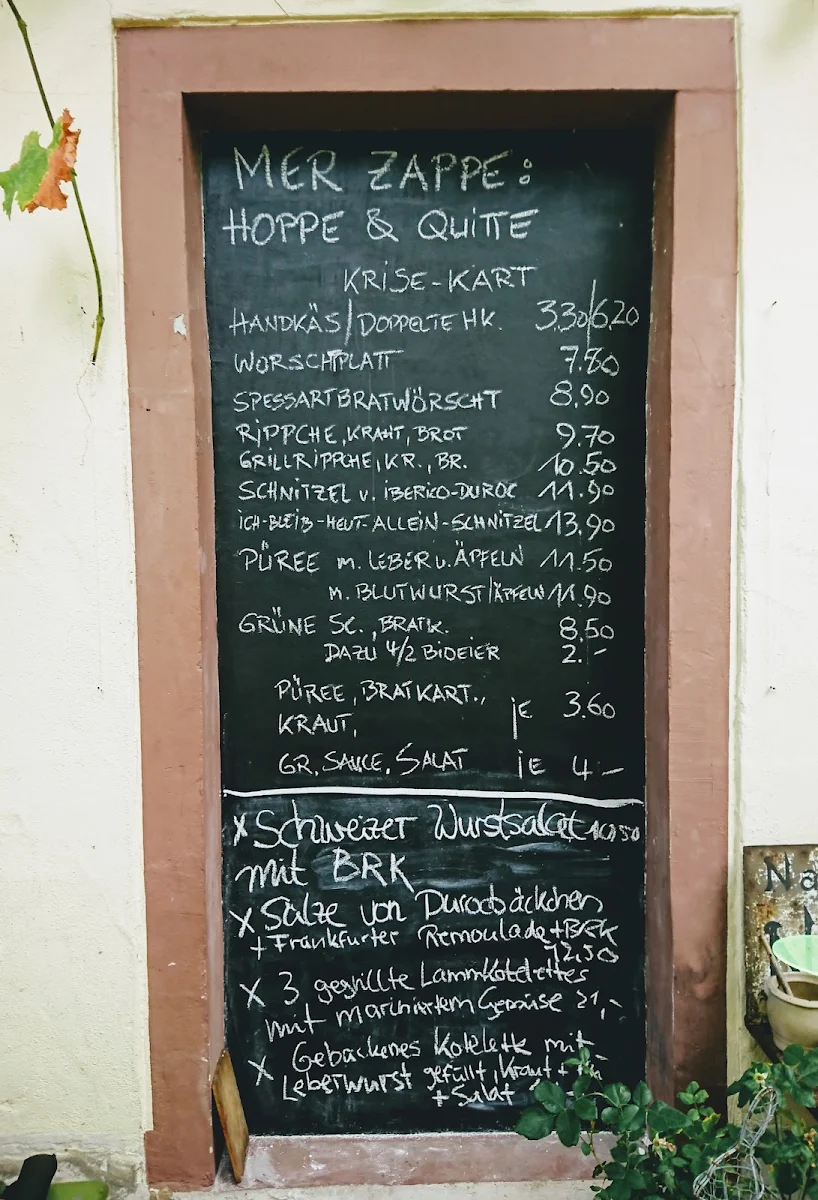 MER ZAPPE:
HOPPE & QUITTE
KRISE-KART
HANDKÄS/DOPPELTE HK. 3.30/6.20
WORSCHTPLATT 7.80
SPESSARTBRATWÖRSCHT 8.90
RIPPCHE, KRAUT, BROT 9.70
GRILLRIPPCHE, KR., BR. 10.50
SCHNITZEL v. IBERICO-DUROC 11.90
ICH-BLEIB-HEUT-ALLEIN-SCHNITZEL 13.90
PÜREE m. LEBER u. ÄPFELN 11.50
m. BLUTWURST/ÄPFELN 11.90
GRÜNE SC., BRATK. 8.50
DAZU 4/2 BIOEIER 2.-
PÜREE, BRATKART.,
KRAUT, jE 3.60
GR. SAUCE, SALAT jE 4.-
x Schweizer Wurstsalat 10,50
mit BRK
x Sülze von Durocbäckchen
+ Frankfurter Remoulade + BRK
12,50
x 3 gegrillte Lammkotelettes
mit mariniertem Gemüse 21,-
x Gebackenes Kotelett mit
Leberwurst gefüllt, Kraut +
+ Salat
Na